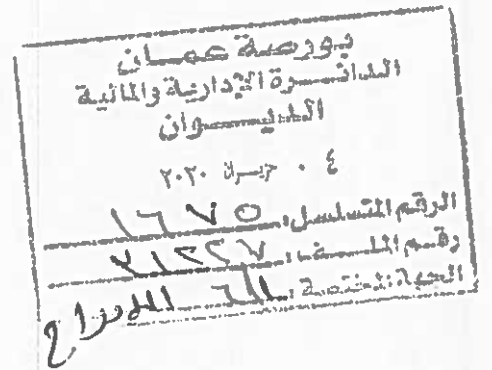 بورصة عمان
الدائرة الإدارية والمالية
الديوان
٠٤ حزيران ٢٠٢٠
الرقم المتسلسل: ١٦٧٥
رقم الملف: ٣١٢٢٧
الجهة المختصة: الإدراج